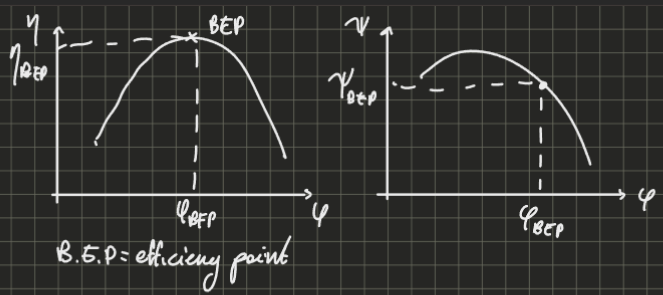 η BEP
η_BEP
φ_BEP φ
ψ
ψ_BEP
φ_BEP φ
B.E.P = efficieny point